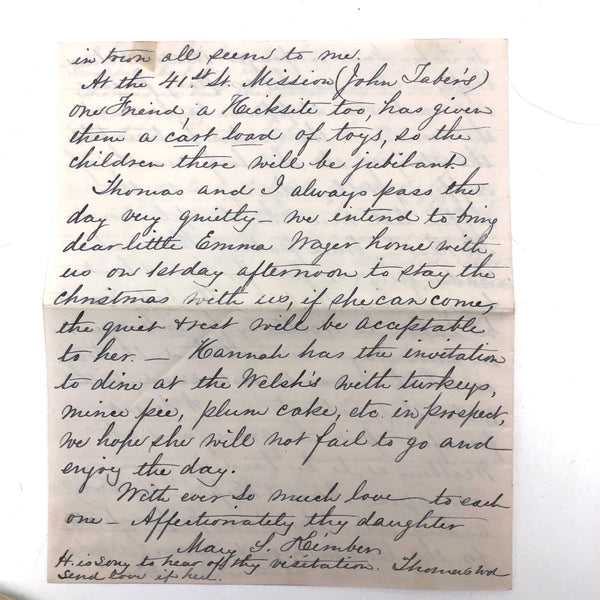 in town all seem to me.
At the 41.st St. Mission (John Taber's)
one Friend, a Hicksite too, has given
them a cart load of toys, so the
children there will be jubilant.
Thomas and I always pass the
day very quietly — we intend to bring
dear little Emma Wager home with
us on 1st day afternoon to stay the
christmas with us, if she can come,
the quiet & rest will be acceptable
to her. — Hannah has the invitation
to dine at the Welsh's with turkeys,
mince pie, plum cake, etc. in prospect,
we hope she will not fail to go and
enjoy the day.
With ever so much love to each
one — Affectionately thy daughter
Mary S. Kimber
H. is sorry to hear of thy visitation. Thomas wd
send love if here.